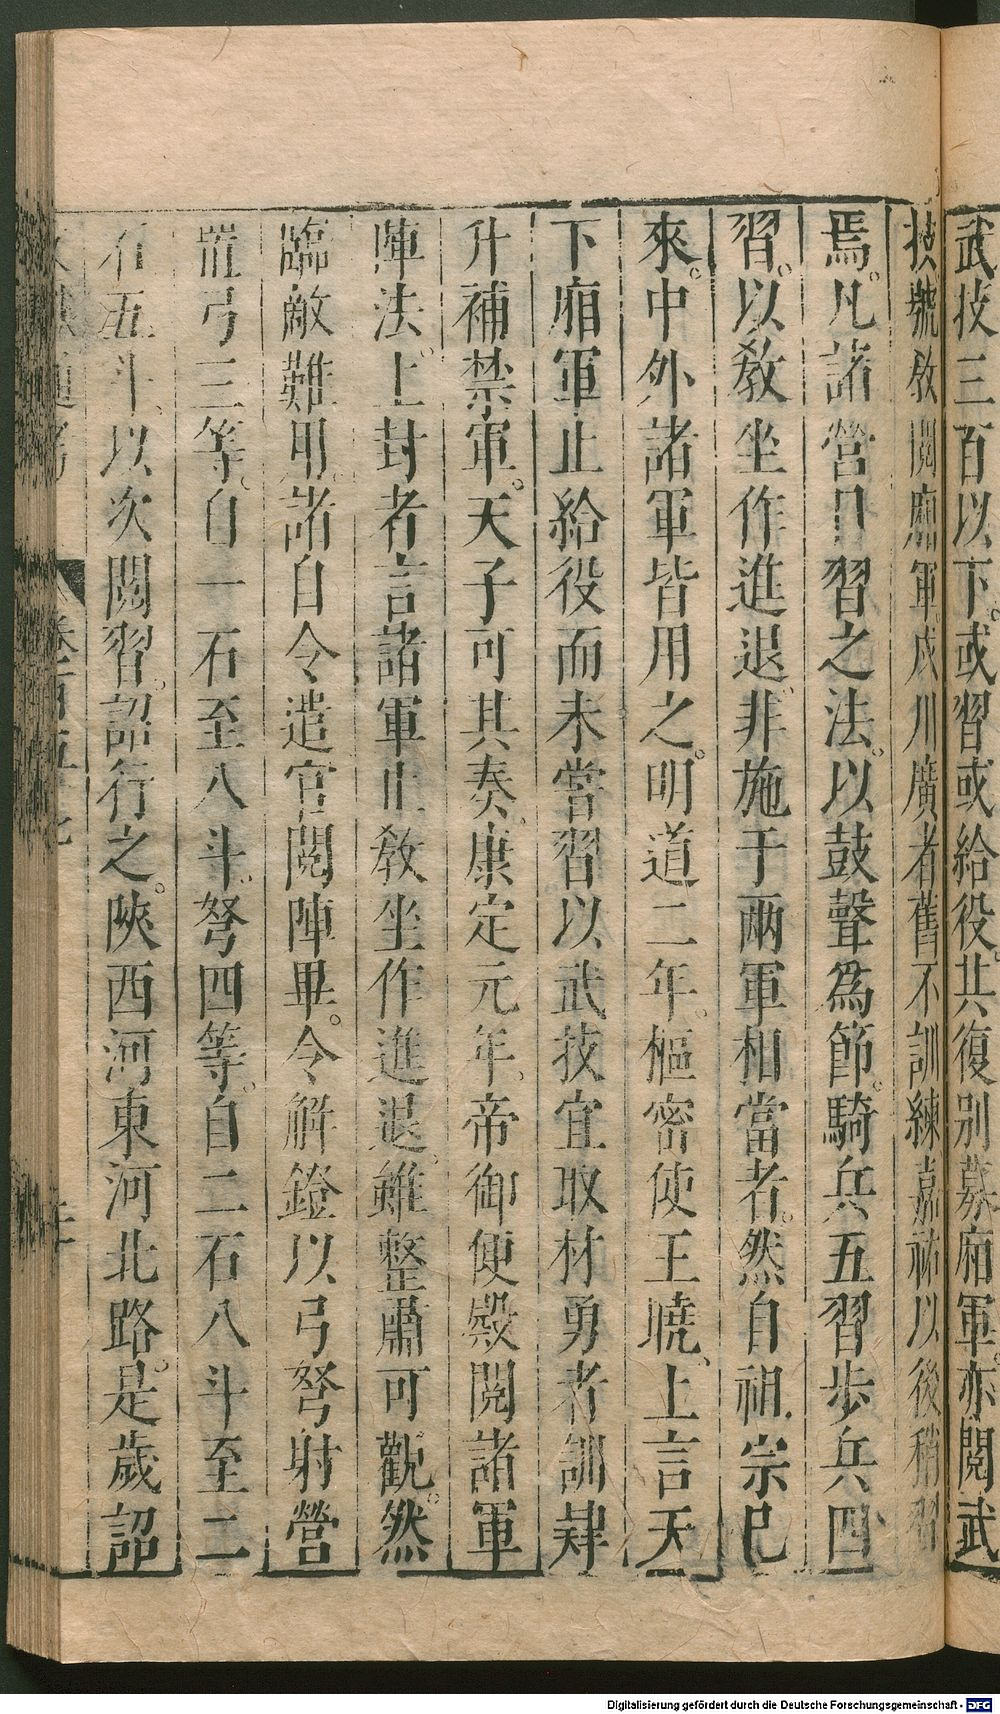 武技三百以下。或習或給役。共復別募廂軍。亦閱武
技號敎閱廂軍戍川廣者舊不訓練嘉祐以後稍習
焉。凡諸營日習之法。以鼓聲爲節。騎兵五習步兵四
習。以敎坐作進退。非施于兩軍相當者。然自祖宗已
來。中外諸軍皆用之。明道二年。樞密使王曉、上言天
下廂軍止給役而未嘗習以武技宜取材勇者訓肄
升補禁軍。天子可其奏。康定元年。帝御便殿閱諸軍
陣法。上封者言諸軍止敎坐作進退。雖整肅可觀。然
臨敵難用。諸自令遣官閱陣畢。令解鐙以弓弩射營
置弓三等。自一石至八斗。弩四等。自二石八斗至二
石五斗、以次閱習。詔行之。陝西河東河北路。是歲詔
Digitalisierung gefördert durch die Deutsche Forschungsgemeinschaft - DFG